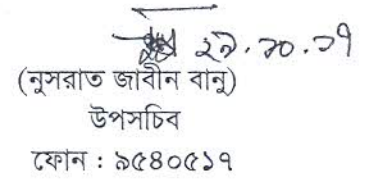 ২৯.১০.১৭
(নুসরাত জাবীন বানু)
উপসচিব
ফোন : ৯৫৪০৫১৭